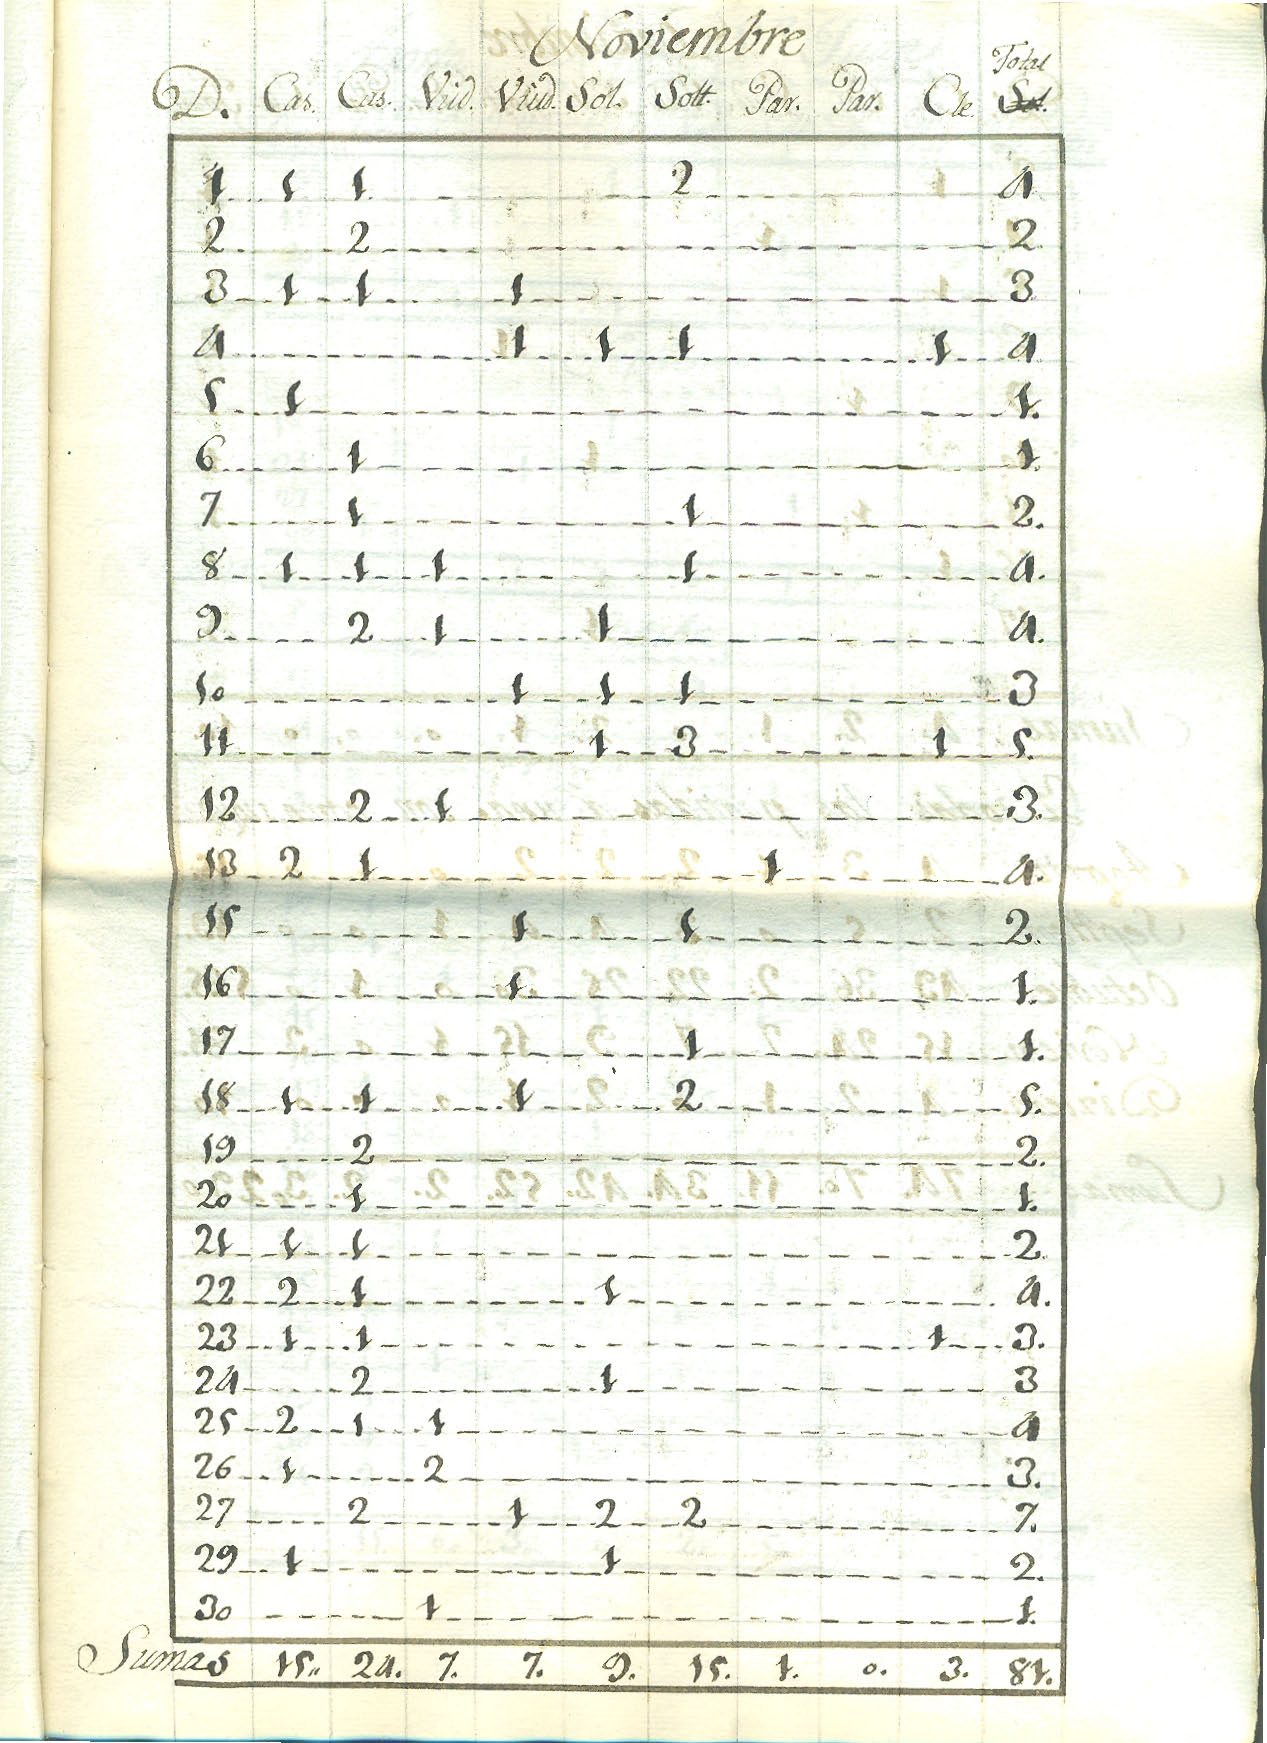 Noviembre
D. Cas. Cas. Viud. Viud. Sol. Solt. Par. Par. Cle. Total
1 1 1 2 4
2 2 2
3 1 1 1 3
4 1 1 1 1 4
5 1 1.
6 1 1.
7 1 1 2.
8 1 1 1 1 4.
9 2 1 1 4.
10 1 1 1 3
11 1 3 1 5.
12 2 1 3.
13 2 1 1 4.
15 1 1 2.
16 1 1.
17 1 1.
18 1 1 1 2 5.
19 2 2.
20 1 1.
21 1 1 2.
22 2 1 1 4.
23 1 1 1 3.
24 2 1 3
25 2 1 1 4
26 1 2 3.
27 2 1 2 2 7.
29 1 1 2.
30 1 1.
Sumas 15.. 24. 7. 7. 9. 15. 1. 0. 3. 81.